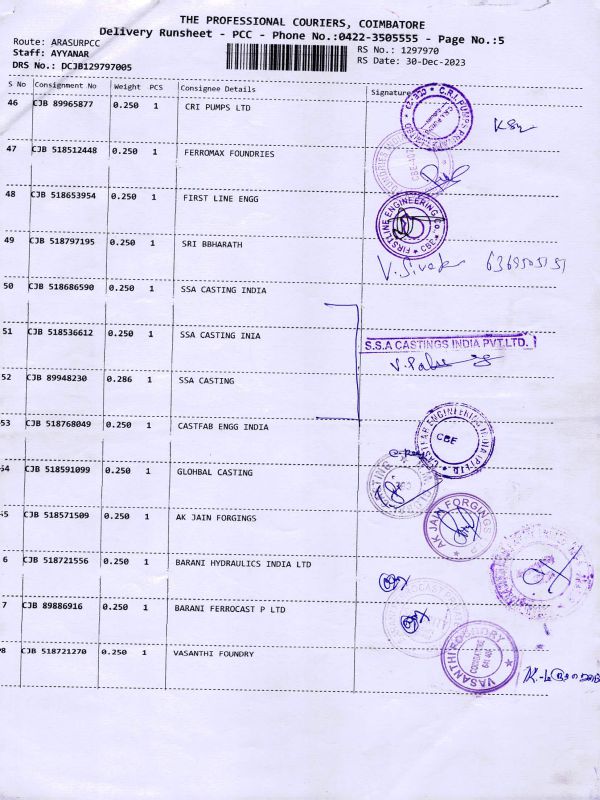 THE PROFESSIONAL COURIERS, COIMBATORE
Delivery Runsheet - PCC - Phone No.:0422-3505555 - Page No.:5
Route: ARASURPCC
Staff: AYYANAR
DRS No.: DCJB129797005
RS No.: 1297970
RS Date: 30-Dec-2023
S No Consignment No Weight PCS Consignee Details Signature
46 CJB 89965877 0.250 1 CRI PUMPS LTD
47 CJB 518512448 0.250 1 FERROMAX FOUNDRIES
48 CJB 518653954 0.250 1 FIRST LINE ENGG
FIRSTLINE ENGINEERING Co.
49 CJB 518797195 0.250 1 SRI BBHARATH
50 CJB 518686590 0.250 1 SSA CASTING INDIA
51 CJB 518536612 0.250 1 SSA CASTING INIA
S.S.A CASTINGS INDIA PVT.LTD.
52 CJB 89948230 0.286 1 SSA CASTING
53 CJB 518768049 0.250 1 CASTFAB ENGG INDIA
CBE
54 CJB 518591099 0.250 1 GLOHBAL CASTING
55 CJB 518571509 0.250 1 AK JAIN FORGINGS
AK JAIN FORGINGS
6 CJB 518721556 0.250 1 BARANI HYDRAULICS INDIA LTD
7 CJB 89886916 0.250 1 BARANI FERROCAST P LTD
8 CJB 518721270 0.250 1 VASANTHI FOUNDRY
VASANTHI FOUNDRY